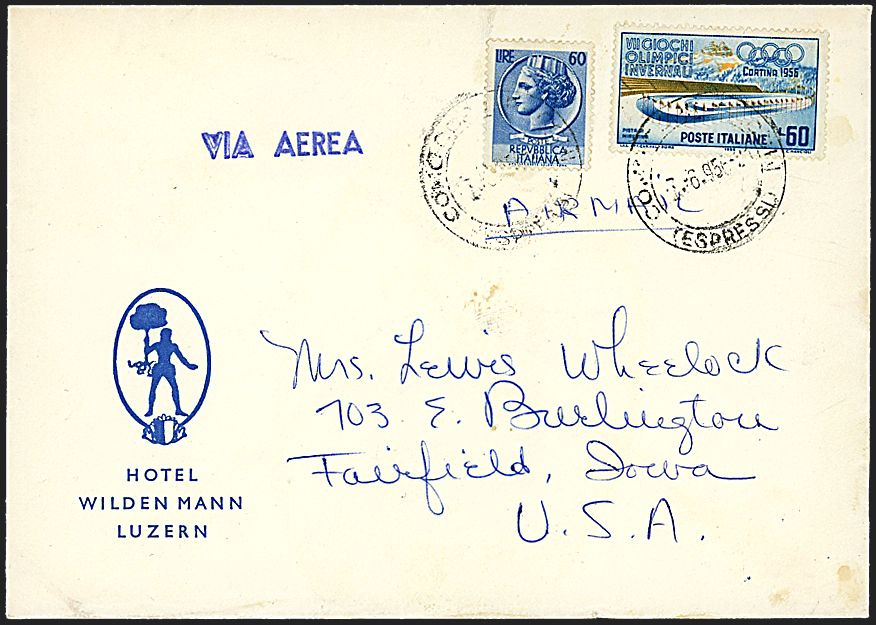 VIA AEREA
LIRE 60
POSTE
REPVBBLICA
ITALIANA
VII GIOCHI
OLIMPICI
INVERNALI
CORTINA 1956
POSTE ITALIANE
L. 60
(ESPRESSI)
AIRMAIL
Mrs. Lewis Wheelock
703 E. Burlington
Fairfield, Iowa
U.S.A.
HOTEL
WILDEN MANN
LUZERN